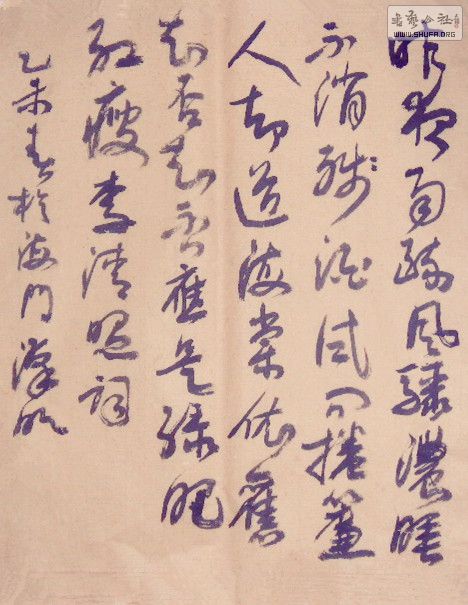 昨夜雨疏風驟濃睡
不消殘酒試問捲簾
人却道海棠依舊
知否知否應是綠肥
紅瘦李清照詞
乙未春於海門
書藝公社
WWW.SHUFA.ORG